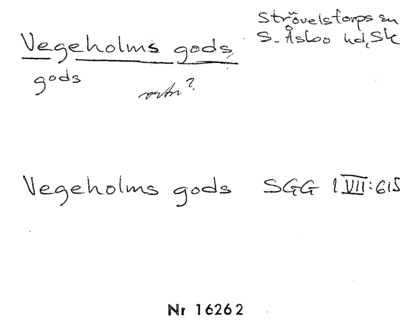 Vegeholms gods
Strövelstorps sn
S. Åsbo hd, Sk
gods
Vegeholms gods SGG 1 VII:615
Nr 16262